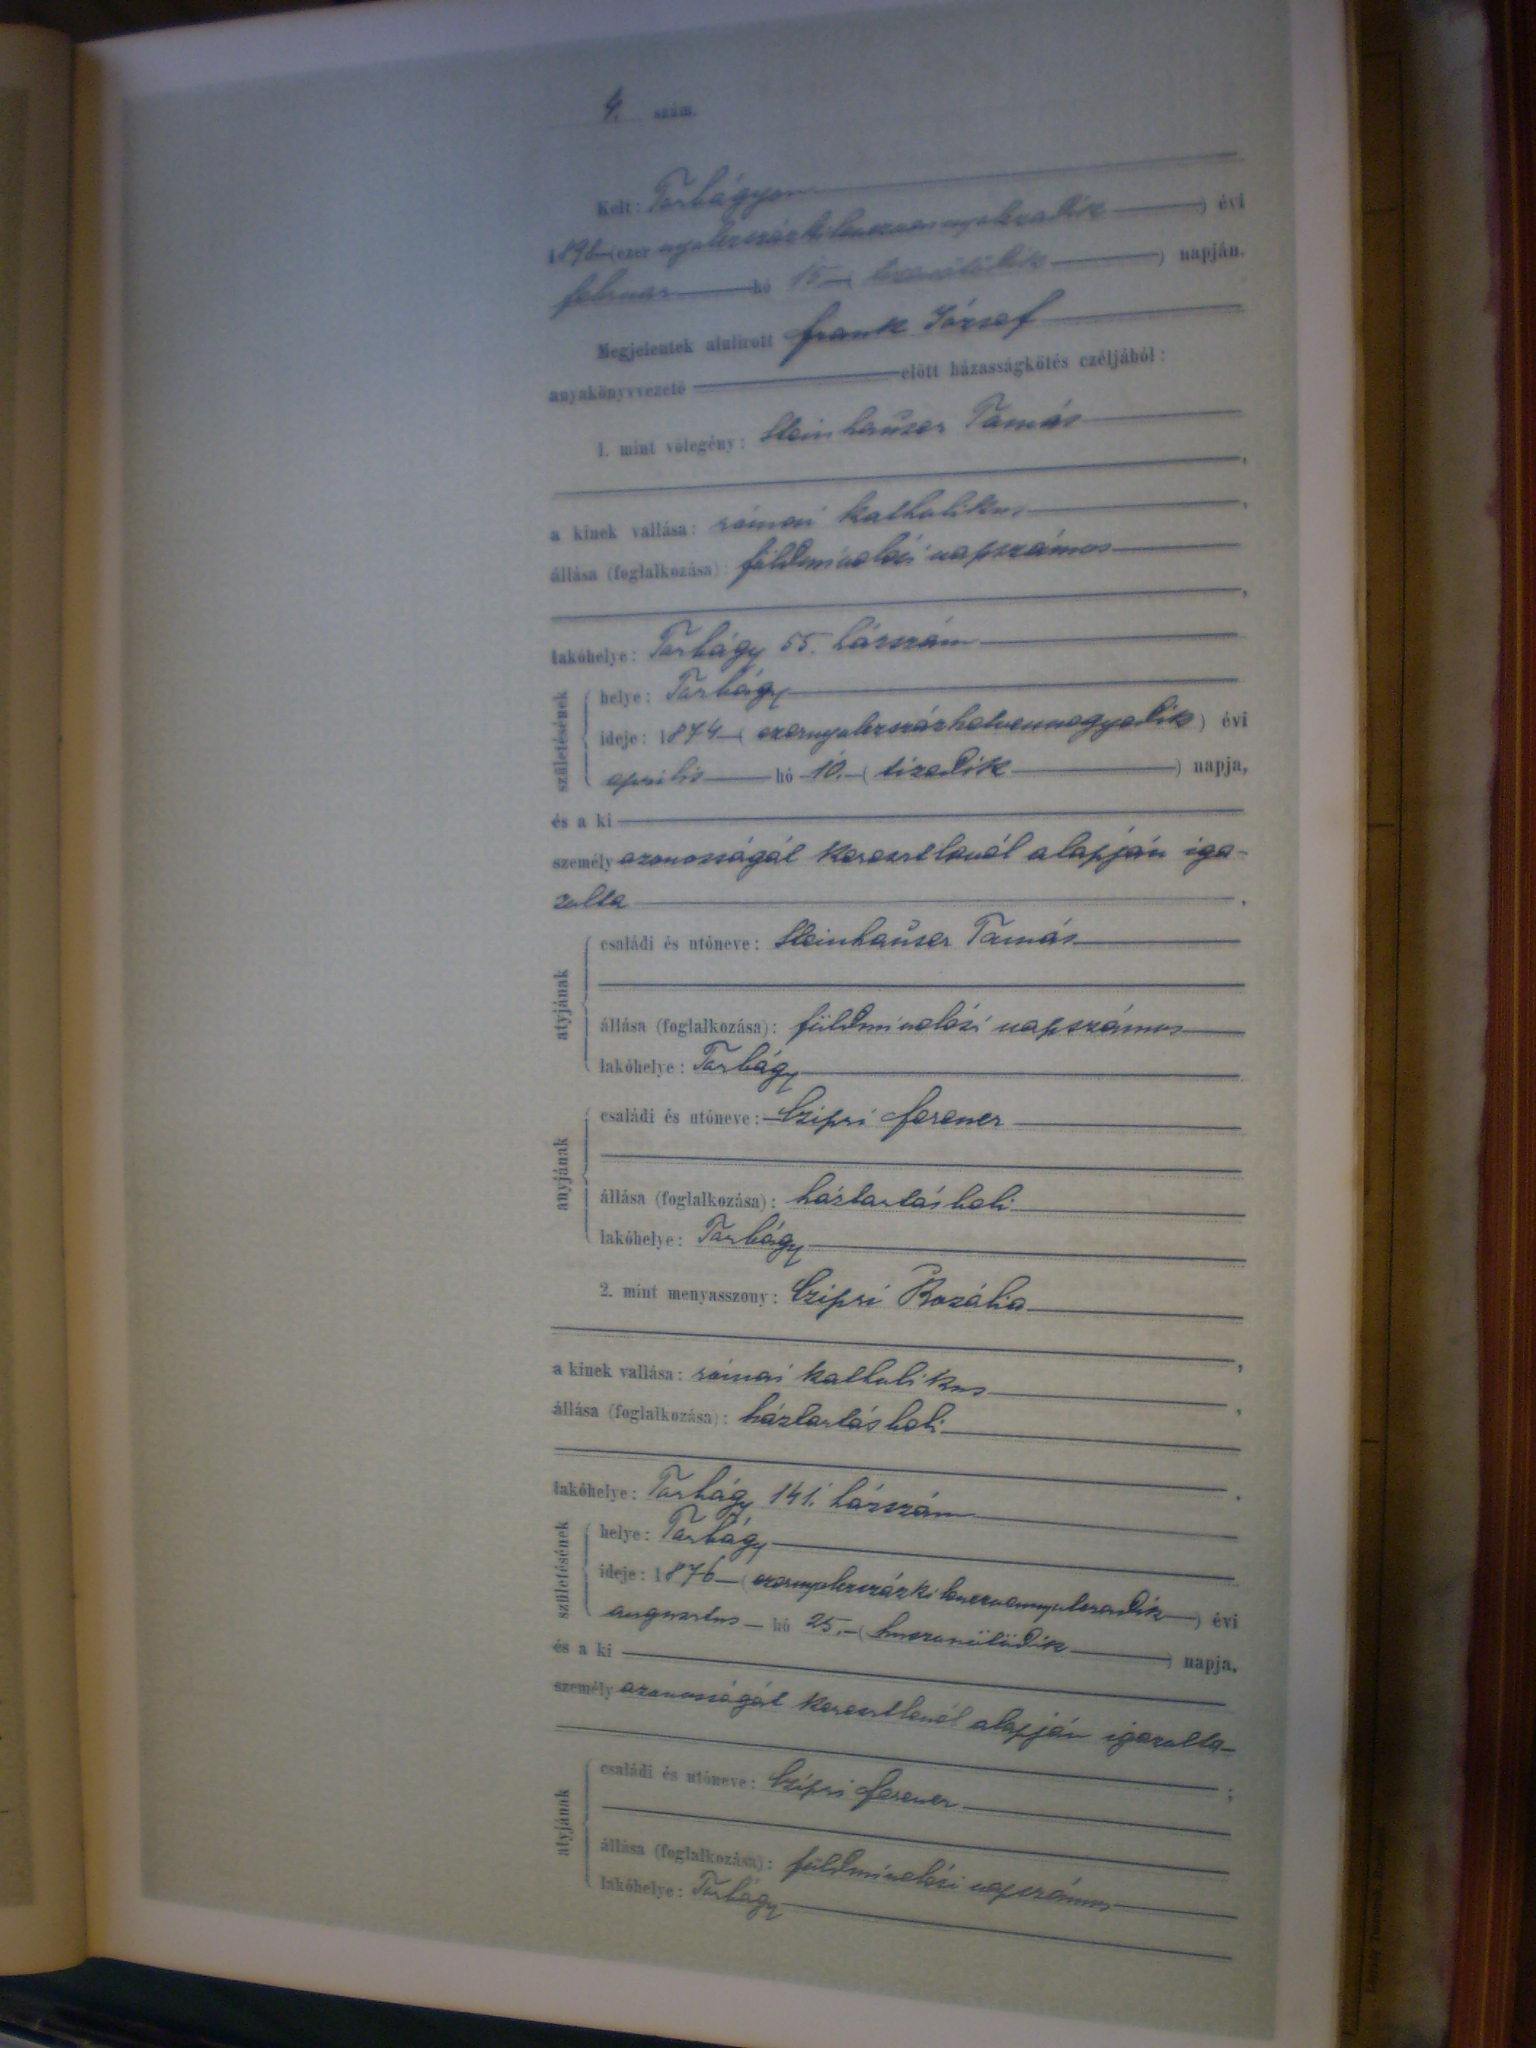 4. szám.
Kelt: Torbágyon
1898 (ezer nyolczszázkilenczvennyolczadik) évi
február hó 15 ( tizenötödik ) napján.
Megjelentek alulirott Frank József
anyakönyvvezető előtt házasságkötés czéljából:
1. mint vőlegény: Steinhauser Tamás
,
a kinek vallása: római katholikus,
állása (foglalkozása): földmivelési napszámos
,
lakóhelye: Torbágy 55. házszám
születésének
helye: Torbágy
ideje: 1874 (ezernyolczszázhetvennegyedik) évi
április hó 10. (tizedik) napja,
és a ki
személyazonosságát keresztlevél alapján iga-
zolta.
atyjának
családi és utóneve: Steinhauser Tamás
állása (foglalkozása): földmivelési napszámos
lakóhelye: Torbágy
anyjának
családi és utóneve: Czipri Ferencz
állása (foglalkozása): háztartásbeli
lakóhelye: Torbágy
2. mint menyasszony: Czipri Rozália
,
a kinek vallása: római katholikus,
állása (foglalkozása): háztartásbeli
.
lakóhelye: Torbágy 141. házszám
születésének
helye: Torbágy
ideje: 1876 (ezernyolczszázkilenczvennyolczadik) évi
augusztus hó 25. (huszonötödik) napja,
és a ki
személyazonosságát keresztlevél alapján igazolta
;
atyjának
családi és utóneve: Czipri Ferencz
állása (foglalkozása): földmivelési napszámos
lakóhelye: Torbágy